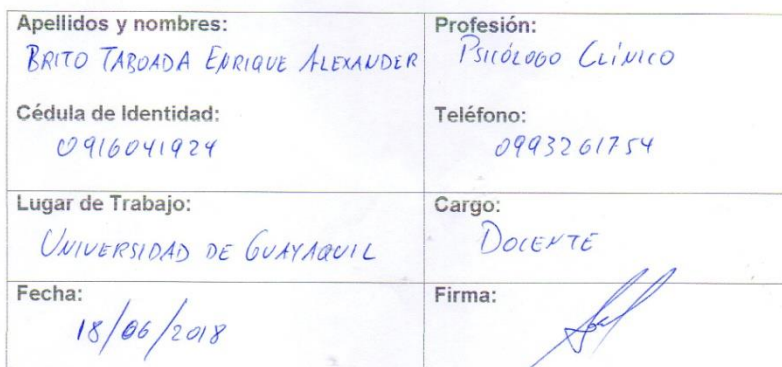 Apellidos y nombres:
BRITO TABOADA ENRIQUE ALEXANDER
Profesión:
PSICÓLOGO CLÍNICO
Cédula de Identidad:
0916041924
Teléfono:
0993261754
Lugar de Trabajo:
UNIVERSIDAD DE GUAYAQUIL
Cargo:
DOCENTE
Fecha:
18/06/2018
Firma: